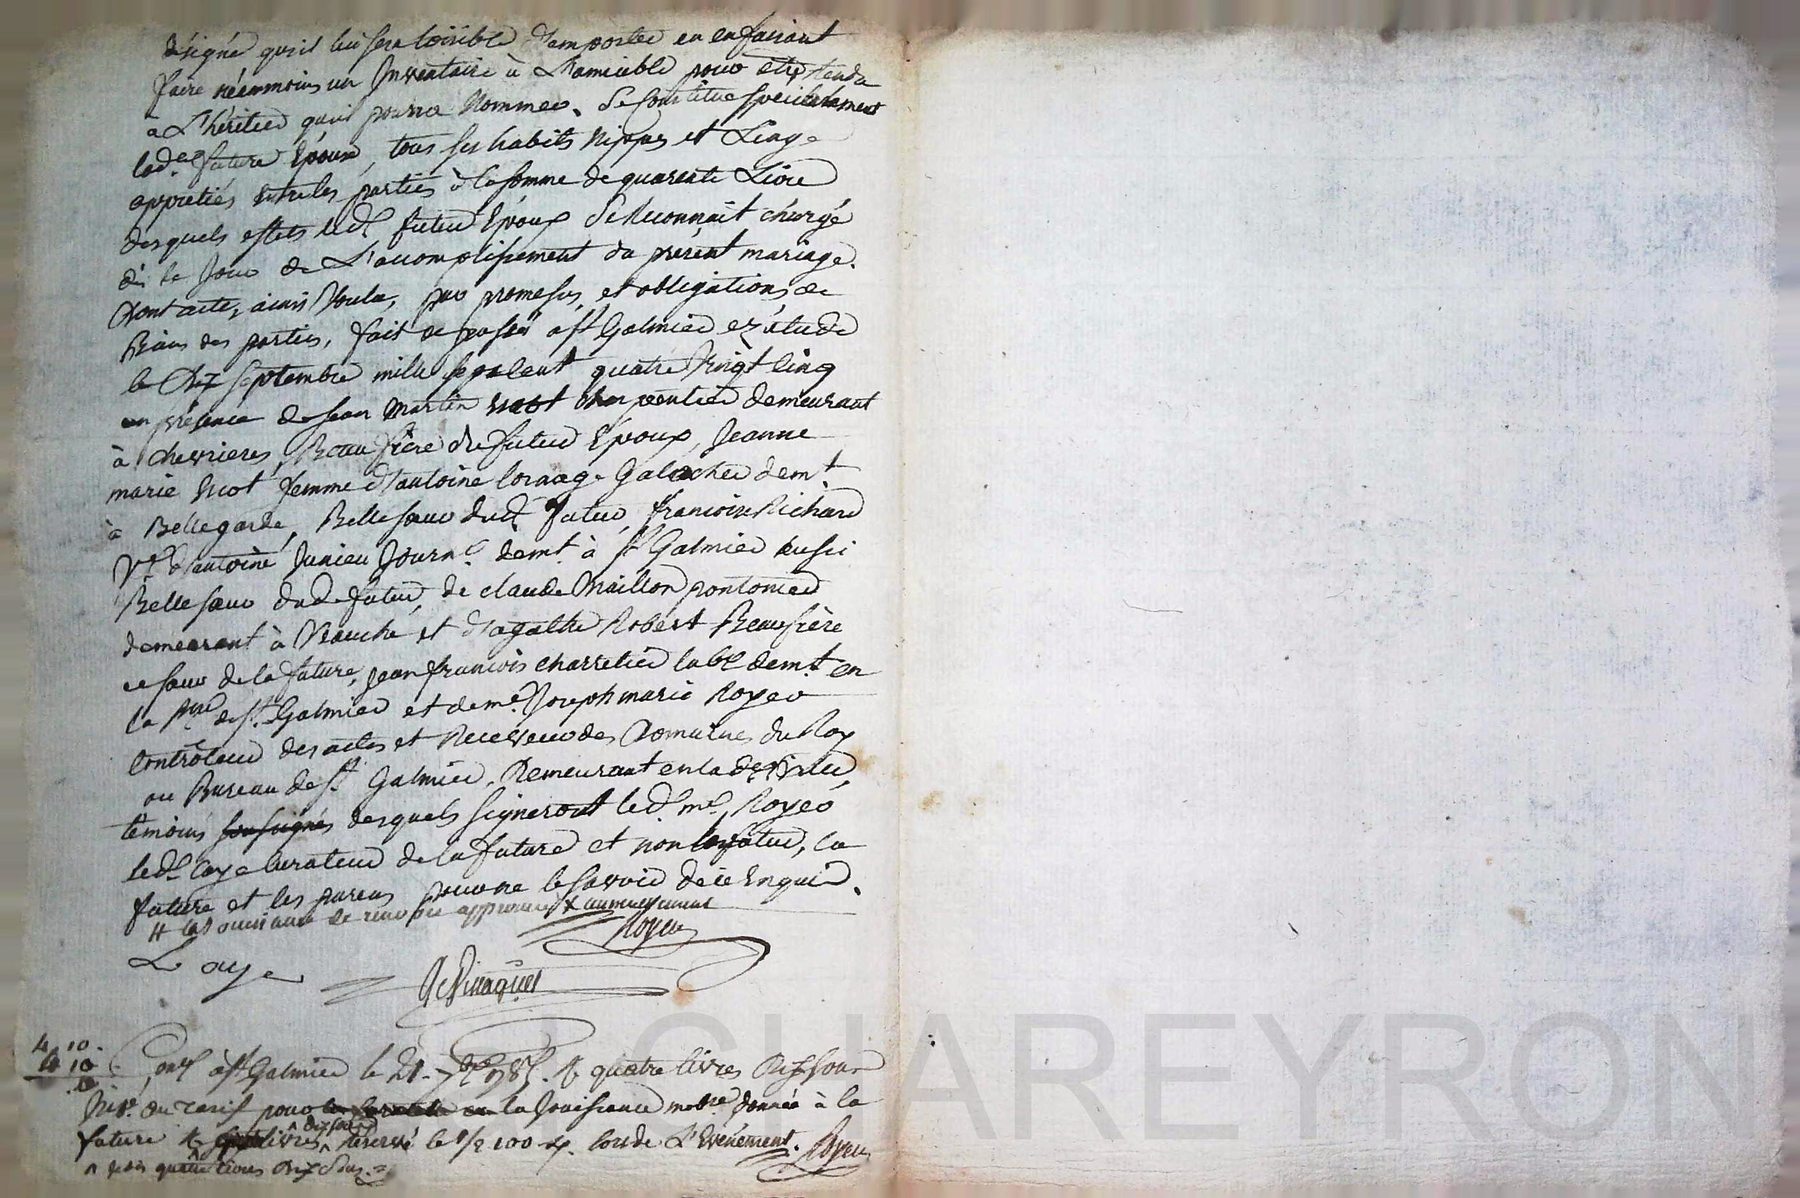 désigné qu'il lui sera loisible d'emporter en en faisant
faire néanmoins un Inventaire à L'amiable pour être rendu
a L'héritier qu'il pourra Nommer. Se Constitue spécialement
lad.e future Epouse, tous ses habits Nippes et Linge
appretiés entre les parties à la somme de quarente Livre
desquels effets led.t futur Epoux Se Reconnait chargé
dè le Jour de L'accomplissement du présent mariage.
Dont acte, ainsi Voulu, par promesses, et obligations de
Biens des parties, fait et passé à s.t Galmier ez étude
le Dix septembre mille sept Cent quatre Vingt Cinq
en présence de Jean Martin charpentier demeurant
à chevrieres, Beau frère du futur Epoux, Jeanne
marie femme d'antoine Galocher dem.t
à Bellegarde, Belle sœur dud.t futur, francoise Richard
V.e d'antoine Junieu Journ.r demt. à s.t Galmier aussi
Belle sœur dud. futur, de claude Maillon pontonier
demeurant à Veauche et d'agathe Robert Beaufrère
et sœur de la future, Jean francois charretier lab.r demt. en
la p.sse de s.t Galmier et de me. Joseph marie Royer
Contrôleur des actes et Receveur des Domaines du Roy
au Bureau de s.t Galmier, Demeurant en lad. Ville
témoins soussignés desquels signeront led.t me. Royer
led.t Loye Curateur de la future et non le futur, la
future et les parens pour ne le savoir de ce Enquis.
# la Jouissance et renvoi approuvés
Royer
Loye
4 10
4 10
10
Con.lé à s.t Galmier le 21. 7bre 1785. R. quatre livres Dix sous
du tarif pour la Jouissance mobre. donnée à la
future livres dix sous réservé le 1/2 100.e lors de L'Evénement. Royer
quatre livres dix sous.